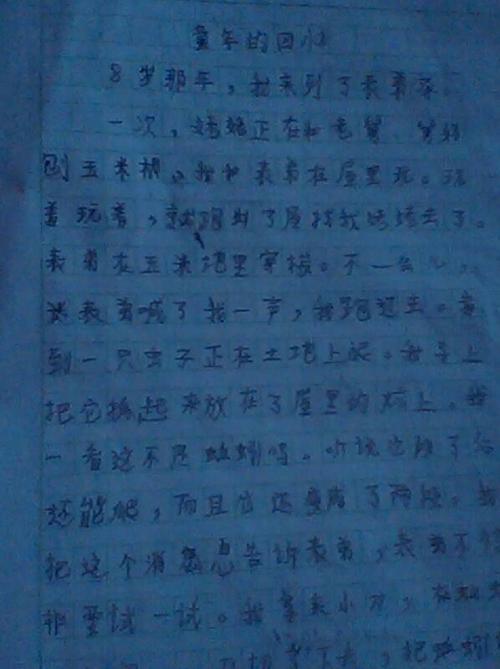 童年的回忆
8岁那年,我来到了表弟家
一次,姥姥正在和老舅、舅妈
刨玉米根,我和表弟在屋里玩。玩
着玩着,就跑到了屋找我姥姥去了。
表弟在玉米地里穿梭。不一会儿,
表弟喊了我一声,我跑过去。看
到一只虫子正在土地上爬。我马上
把它抓起来放在了屋里的炕上。我
一看这不是蚯蚓吗。听说它段了后
还能爬,而且它还变成了两段。我
把这个消息告诉表弟,表弟不信
非要试一试。我拿来小刀,在
切了下去,把蚯蚓